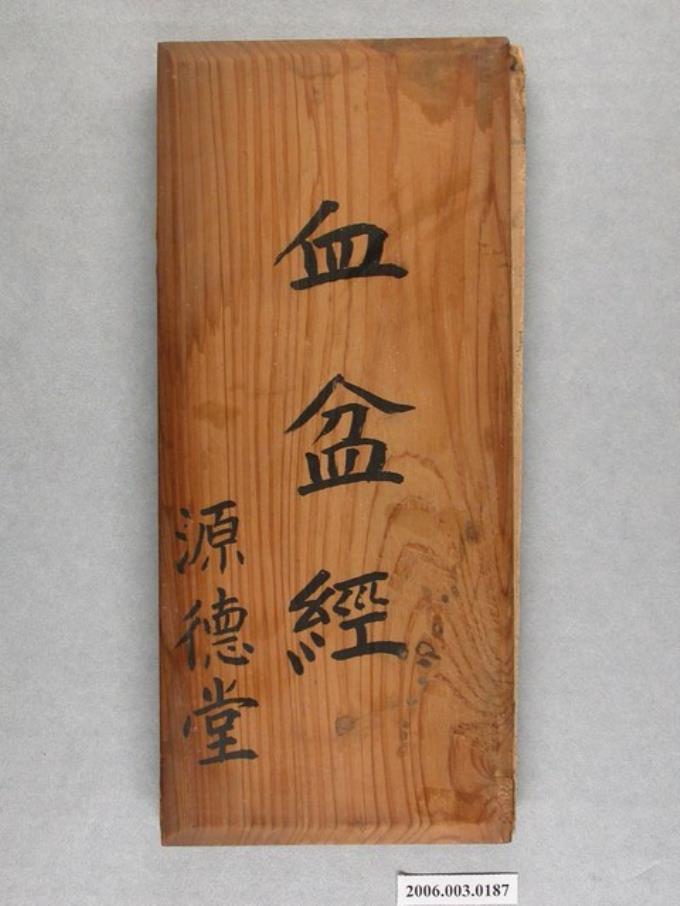 血盆經
源德堂
2006.003.0187